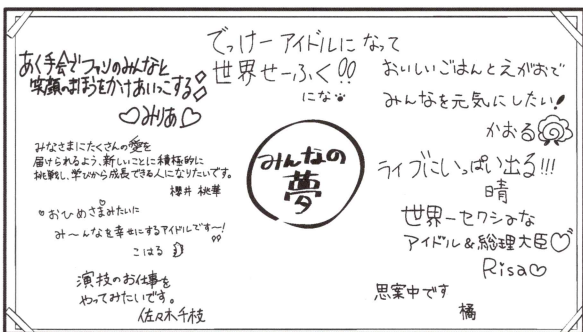 でっけーアイドルになって
世界せーふく!!
にな
あく手会でファンのみんなと
笑顔のまほうをかけあいっこする
みりあ
おいしいごはんとえがおで
みんなを元気にしたい!
かおる
みなさまにたくさんの愛を
届けられるよう、新しいことに積極的に
挑戦し、学びから成長できる人になりたいです。
櫻井 桃華
みんなの
夢
ライブにいっぱい出る!!!
晴
おひめさまみたいに
み〜んなを幸せにするアイドルです〜!
こはる
世界一セクシーな
アイドル&総理大臣
Risa
演技のお仕事を
やってみたいです。
佐々木千枝
思案中です
橘